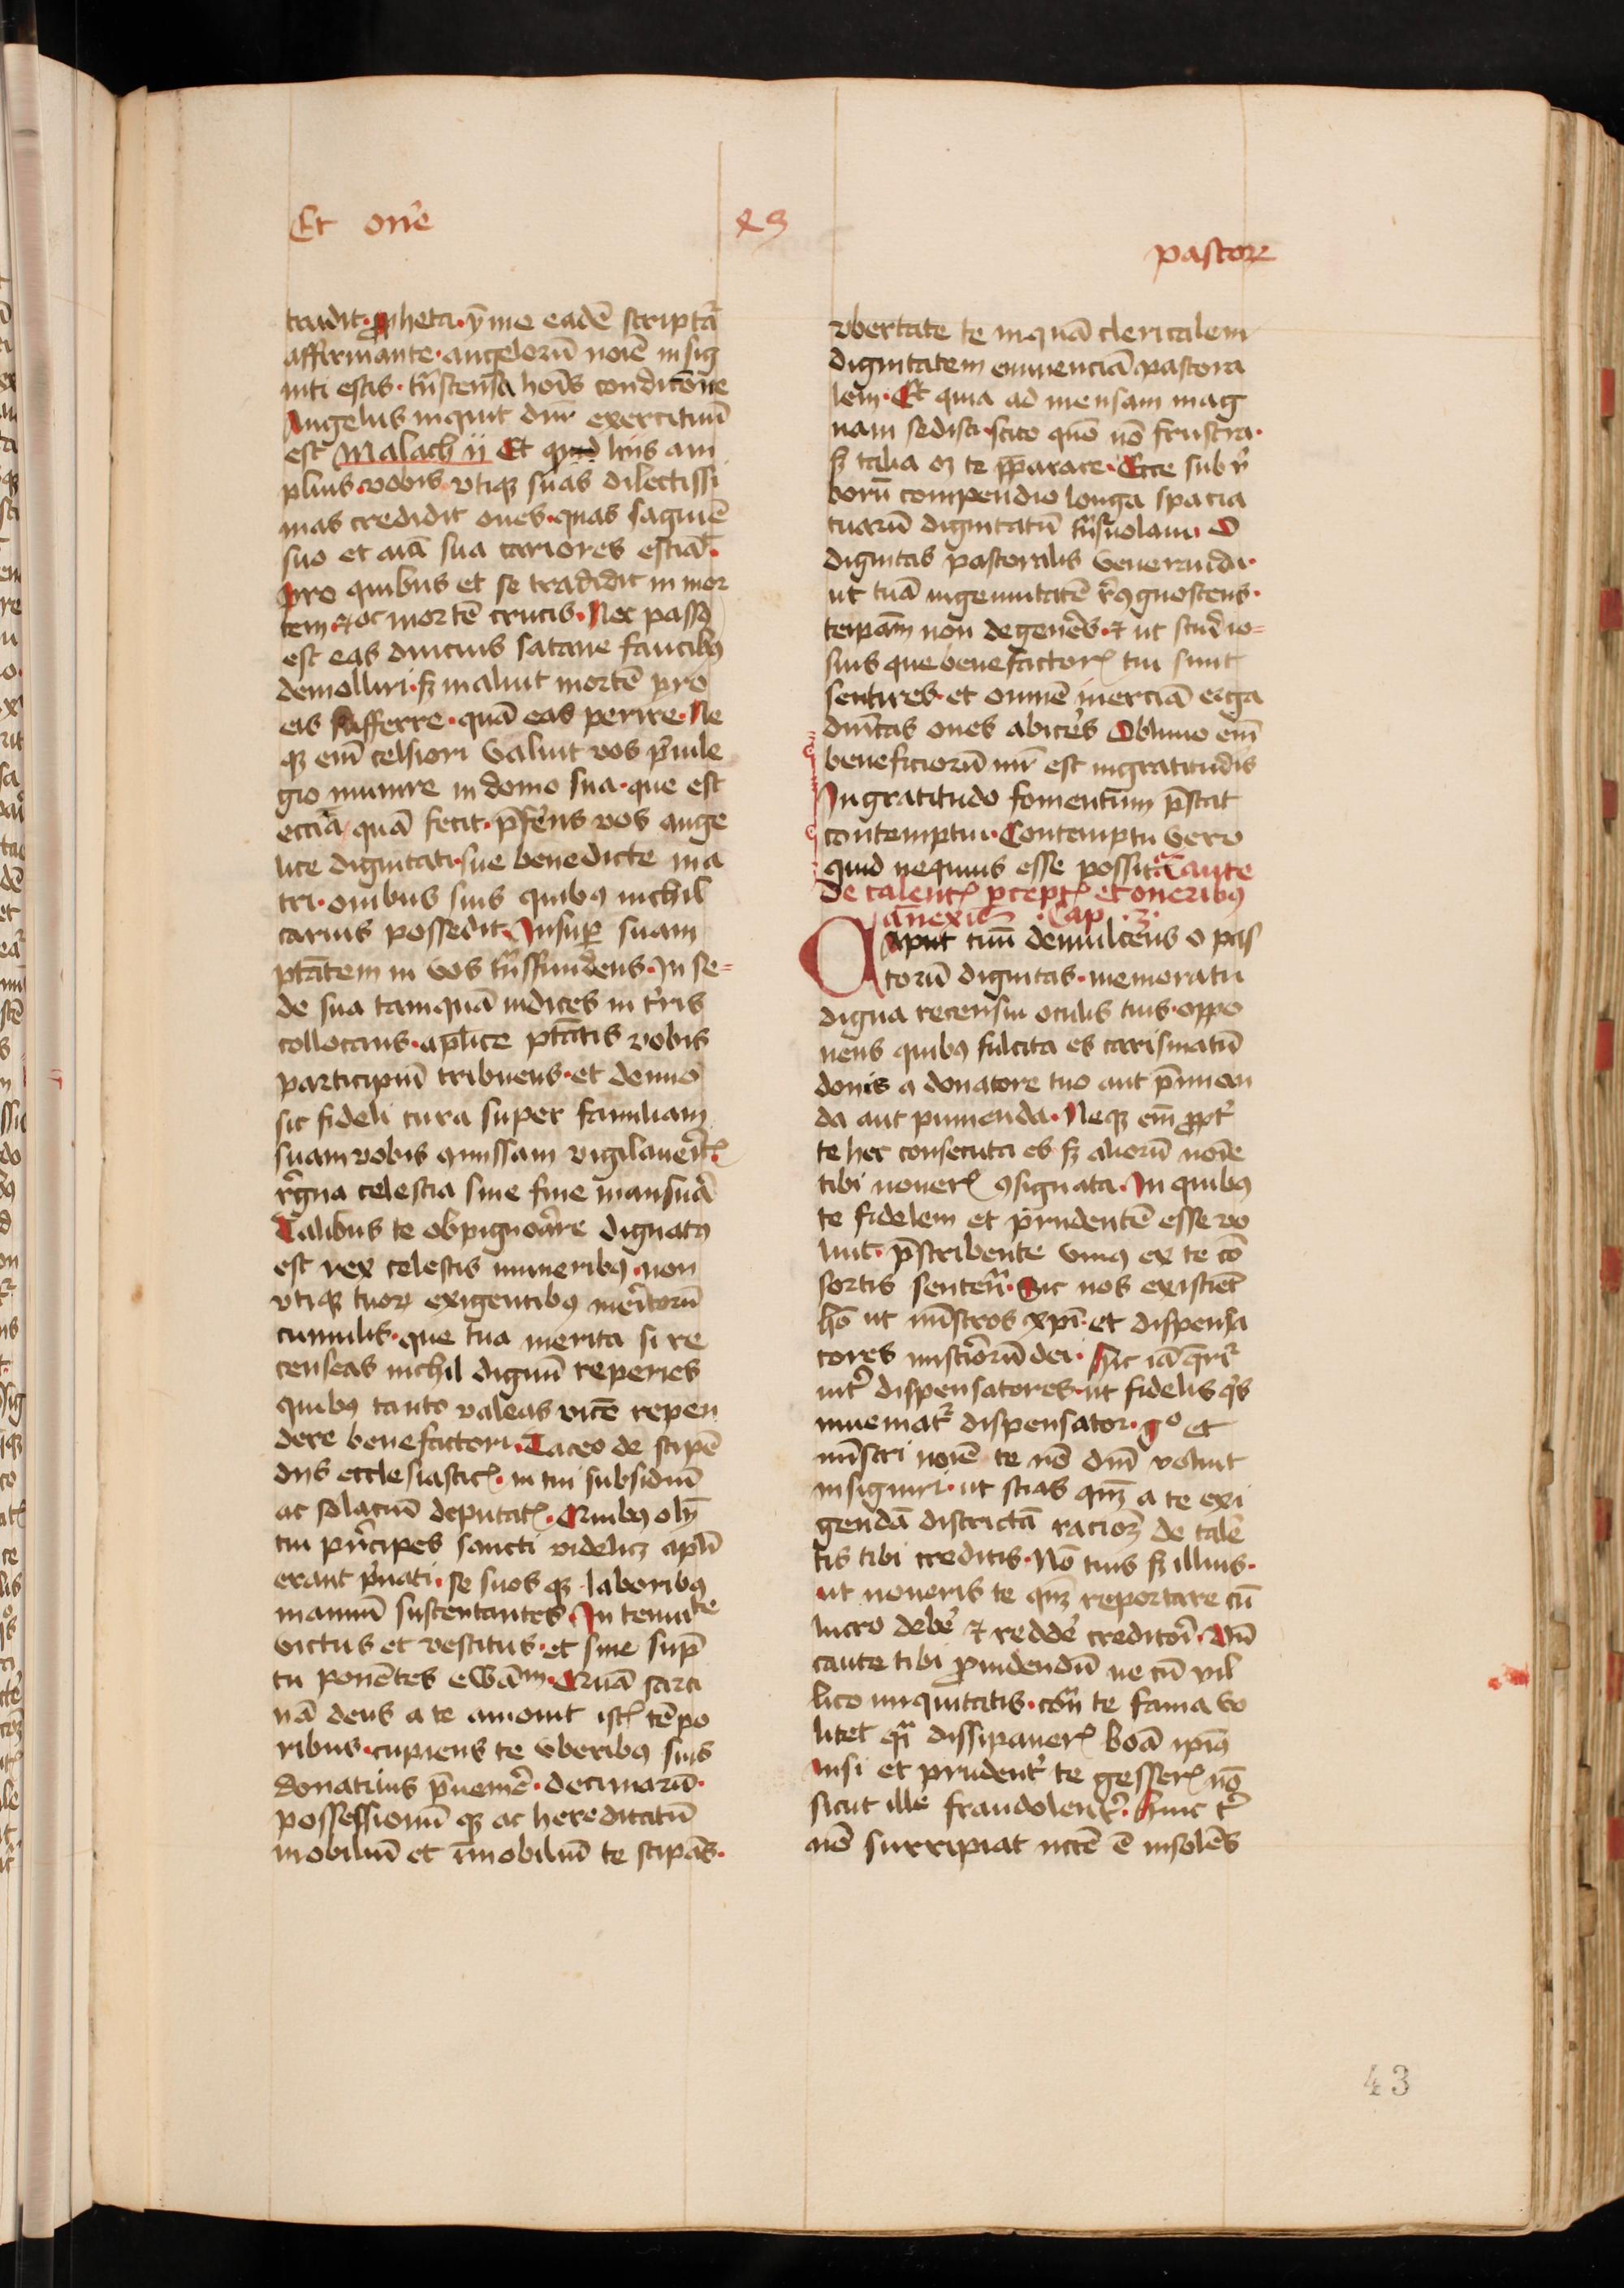 Et on̄e
43
pastorꝫ
tradit· ꝓpheta· ymmo eadē scriptᷓa
affirmante· angelorū noīe insig
niti estis· trāscensa hoīs condicōne
Angelus inquit dn̄i exercituū
est Malach ii Et quid hiis am
plius· vobis vtiqꝫ suas dilectissi
mas credidit oues· quas sagwīe
suo et aīa sua cariores estīat·
Pro quibus et se tradidit in mor
tem· ⁊ oc mortē crucis· Nec passꝯ
est eas diucius satane faucibꝯ
demolliri· sꝫ maluit mortē pro
eis sufferre· quā eas perire· Ne
qꝫ em̄ celsiori valuit vos p̄uile
gio munire in domo sua· que est
eccīa quā fecit· p̄ferēs vos ange
lice dignitati· sue benedicte ma
tri· ouibus suis quibꝯ nichil
carius possedit· Insuꝑ suam
ptātem in vos trāsfundens· In se=
de sua tamquā iudices in t̄ris
collocans· aplīce ptātis vobis
participiū tribuens· et demū
sic fideli cura super familiam
suam vobis cōmissam vigilauerīt
regna celestia sine fine mansurᷓa
Talibus te obpignorare dignatꝯ
est rex celestis muneribꝯ· non
vtiqꝫ tuorꝫ exigentibꝯ meritorū
cumulis· que tua merita si re
censeas nichil dignū reperies
quibꝯ tanto valeas vicē repen
dere benefactori· Taceo de stipē
diis ecclesiastic̄· in tui subsidiū
ac solaciū deputat̄· Quibꝯ oly̅
tui p̄ncipes sancti videlicꝫ apl̄i
erant p̄uati· se suosqꝫ laboribꝯ
manuū sustentantes· In tenuitate
victus et vestitus· et sine sūp
tu ponētes ewām· Quā sarci
nā deus a te amouit ist̄ tēpo
ribus· cupiens te vberibꝯ suis
donatiuis p̄uenire· decimarū·
possessionū qꝫ ac hereditatū
mobiliū et īmobiliū te stipās·
vbertate te inquā clericalem
dignitatem eminenciā pastora
lem· Et quia ad mensam mag
nam sedisti· scito quō nō frustra·
sꝫ talia oꝫ te p̄parare· Ecce sub v̄
borū compendio longa spacia
tuarū dignitatū trāsuolaui· O
dignitas pastoralis veneranda·
ut tuā ingenuitatē recꝯgnoscens·
teipām non degeneres· ⁊ ut studio=
sius que benefactor̄ tui sunt
sentires· et omnē inerciā erga
dn̄icas oues abices Obliuio em̄
beneficiorū mr̄ est ingratitudis
Ingratitudo fomentum p̄stat
contemptui· Contemptu vero
quid nequius esse possit· Caute
de talent̄ ꝑcept̄ et oneribꝯ
annexis· Cap· 3·
Caput tuū demulcens o pas
torū dignitas· memoratu
digna recensui oculis tuis· oppo
nens quibꝯ fulcita es carismatū
donis a donatore tuo aut p̄mian
da aut punienda· Neqꝫ em̄ ꝓpt̄
te hec consecuta es sꝫ aliorū noīe
tibi nouer̄ ꝯsignata· In quibꝯ
te fidelem et prudentē esse vo
luit· p̄scribente vniꝯ ex te cō
sortis sentenc̄· Sic nos existiet
hō ut mīstros xp̄i· et dispensa
tores misteriorū dei· Hic iā q̄rit
int̄ dispensatores· ut fidelis qͥs
inueniat̄ dispensator· gͦ et
mīstri noīe te nō dn̄i voluit
insigniri· ut scias qm̄ a te exi
gendā districtā racionꝫ de talē
tis tibi creditis· Nō tuis sꝫ illius·
ut noueris te qm̄ reportare cū
lucro debe᷑ ⁊ redde᷑ creditori· Vn̄
caute tibi ꝓuidendū ne cū vil
lico iniquitatis· cōtra te fama vo
litet qͥ dissipauer̄ bona ipiꝯ
nisi et prudent̄ te gesser̄ nō
sicut ille fraudolent̄· hunc t̄
nō surripiat mētē ē insolēs
43